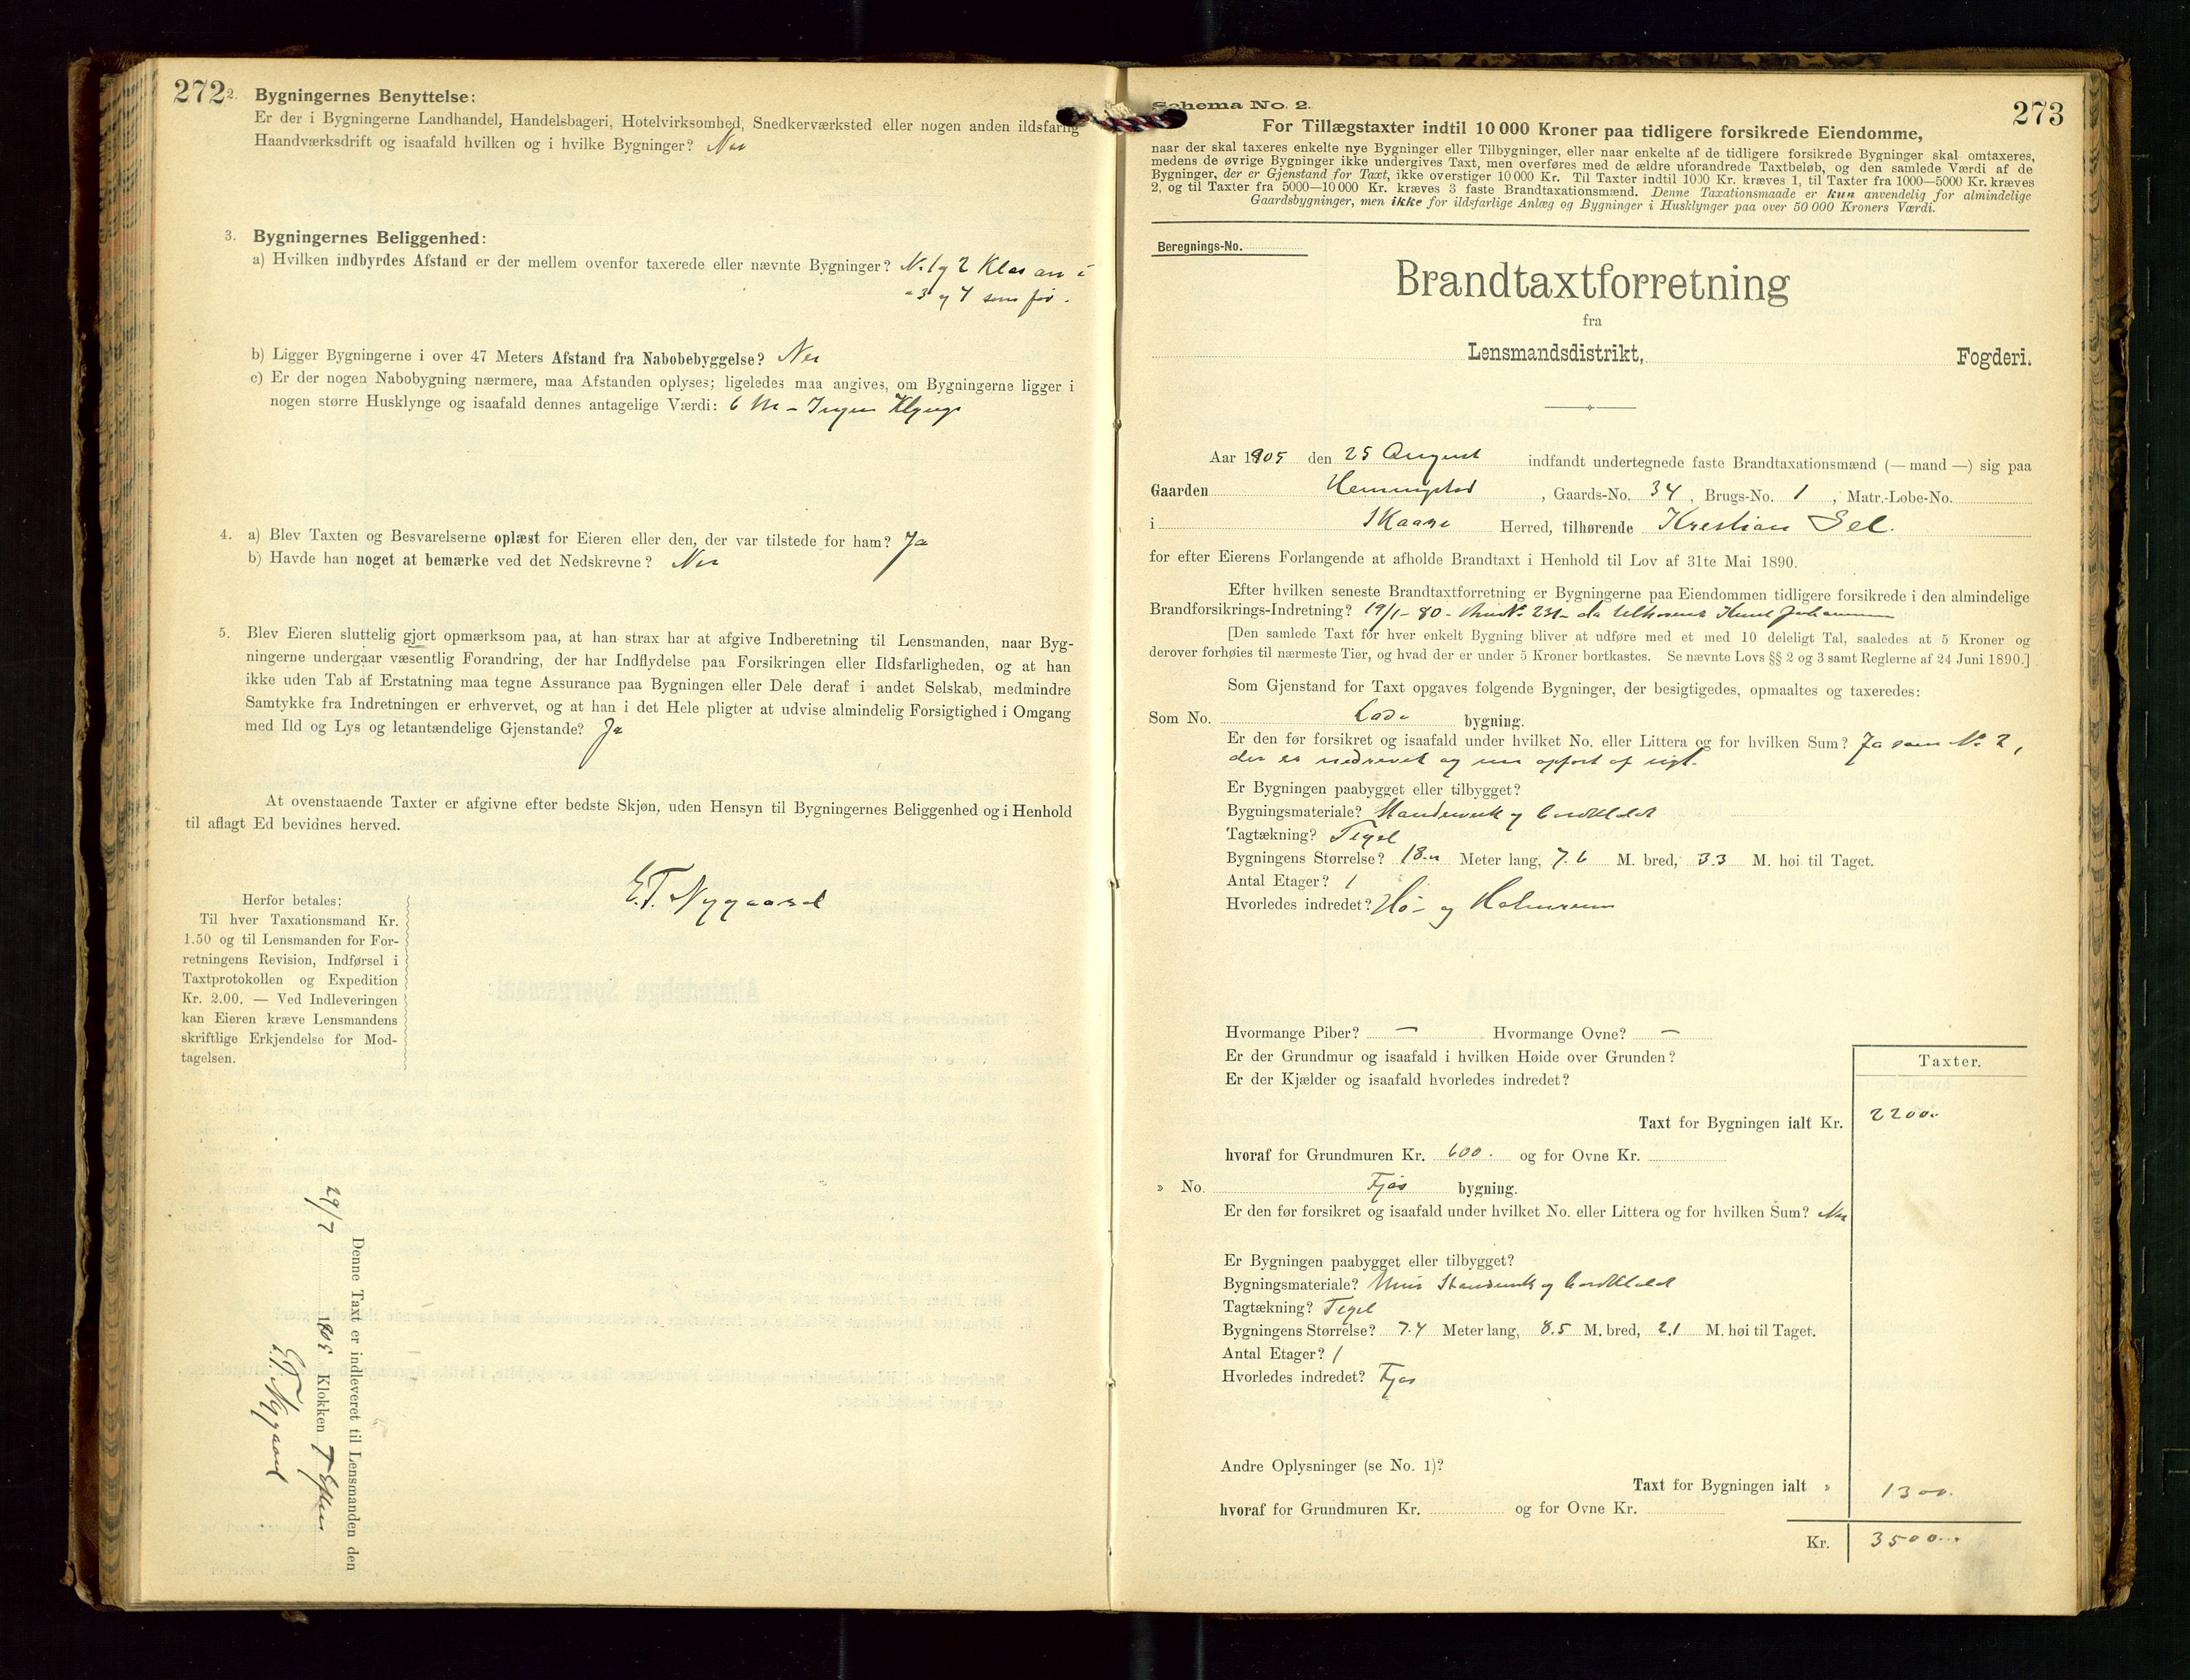 272
2. Bygningernes Benyttelse:
Er der i Bygningerne Landhandel, Handelsbageri, Hotelvirksomhed, Snedkerværksted eller nogen anden ildsfarlig
Haandværksdrift og isaafald hvilken og i hvilke Bygninger? Nei
3. Bygningernes Beliggenhed:
a) Hvilken indbyrdes Afstand er der mellem ovenfor taxerede eller nævnte Bygninger? No. 1 og 2
" 3 og 4 som før.
b) Ligger Bygningerne i over 47 Meters Afstand fra Nabobebyggelse? Nei
c) Er der nogen Nabobygning nærmere, maa Afstanden oplyses; ligeledes maa angives, om Bygningerne ligger i
nogen større Husklynge og isaafald dennes antagelige Værdi: 6 M - Ingen Klynge
4. a) Blev Taxten og Besvarelserne oplæst for Eieren eller den, der var tilstede for ham? Ja
b) Havde han noget at bemærke ved det Nedskrevne? Nei
5. Blev Eieren sluttelig gjort opmærksom paa, at han strax har at afgive Indberetning til Lensmanden, naar Byg-
ningerne undergaar væsentlig Forandring, der har Indflydelse paa Forsikringen eller Ildsfarligheden, og at han
ikke uden Tab af Erstatning maa tegne Assurance paa Bygningen eller Dele deraf i andet Selskab, medmindre
Samtykke fra Indretningen er erhvervet, og at han i det Hele pligter at udvise almindelig Forsigtighed i Omgang
med Ild og Lys og letantændelige Gjenstande? Ja
At ovenstaaende Taxter er afgivne efter bedste Skjøn, uden Hensyn til Bygningernes Beliggenhed og i Henhold
til aflagt Ed bevidnes herved.
E.T. Nygaard
Herfor betales:
Til hver Taxationsmand Kr.
1.50 og til Lensmanden for For-
retningens Revision, Indførsel i
Taxtprotokollen og Expedition
Kr. 2.00. — Ved Indleveringen
kan Eieren kræve Lensmandens
skriftlige Erkjendelse for Mod-
tagelsen.
Denne Taxt er indleveret til Lensmanden den
29/7 1905 Klokken 7 Efter
E.T. Nygaard
Schema No. 2.
273
For Tillægstaxter indtil 10 000 Kroner paa tidligere forsikrede Eiendomme,
naar der skal taxeres enkelte nye Bygninger eller Tilbygninger, eller naar enkelte af de tidligere forsikrede Bygninger skal omtaxeres,
medens de øvrige Bygninger ikke undergives Taxt, men overføres med de ældre uforandrede Taxtbeløb, og den samlede Værdi af de
Bygninger, der er Gjenstand for Taxt, ikke overstiger 10 000 Kr. Til Taxter indtil 1000 Kr. kræves 1, til Taxter fra 1000—5000 Kr. kræves
2, og til Taxter fra 5000—10 000 Kr. kræves 3 faste Brandtaxationsmænd. Denne Taxationsmaade er kun anvendelig for almindelige
Gaardsbygninger, men ikke for ildsfarlige Anlæg og Bygninger i Husklynger paa over 50 000 Kroners Værdi.
Beregnings-No.
Brandtaxtforretning
fra
Lensmandsdistrikt, Fogderi.
Aar 1905 den 25 August indfandt undertegnede faste Brandtaxationsmænd (— mand —) sig paa
Gaarden Hemmingstad, Gaards-No. 34, Brugs-No. 1, Matr.-Lobe-No.
i Skaare Herred, tilhørende Kristian Sel.
for efter Eierens Forlangende at afholde Brandtaxt i Henhold til Lov af 31te Mai 1890.
Efter hvilken seneste Brandtaxtforretning er Bygningerne paa Eiendommen tidligere forsikrede i den almindelige
Brandforsikrings-Indretning? 19/1-80 - No. 231 - da tilhørende Knut Johannessen
[Den samlede Taxt for hver enkelt Bygning bliver at udføre med et med 10 deleligt Tal, saaledes at 5 Kroner og
derover forhøies til nærmeste Tier, og hvad der er under 5 Kroner bortkastes. Se nævnte Lovs §§ 2 og 3 samt Reglerne af 24 Juni 1890.]
Som Gjenstand for Taxt opgaves følgende Bygninger, der besigtigedes, opmaaltes og taxeredes:
Som No. Lade bygning.
Er den før forsikret og isaafald under hvilket No. eller Littera og for hvilken Sum? Ja som No. 2,
der er nedrevet og nu opført af nyt.
Er Bygningen paabygget eller tilbygget?
Bygningsmateriale? Standerverk og bordklædt
Tagtækning? Tegel
Bygningens Størrelse? 18.0 Meter lang, 7.6 M. bred, 3.3 M. høi til Taget.
Antal Etager? 1
Hvorledes indredet? Hø- og Halmrum
Hvormange Piber? — Hvormange Ovne? —
Er der Grundmur og isaafald i hvilken Høide over Grunden?
Er der Kjælder og isaafald hvorledes indredet?
Taxter.
Taxt for Bygningen ialt Kr. 2200.-
hvoraf for Grundmuren Kr. 600. og for Ovne Kr.
» No. Fjøs bygning.
Er den før forsikret og isaafald under hvilket No. eller Littera og for hvilken Sum? Nei
Er Bygningen paabygget eller tilbygget?
Bygningsmateriale? Mur Standerverk og bordklædt
Tagtækning? Tegel
Bygningens Størrelse? 7.4 Meter lang, 8.5 M. bred, 2.1 M. høi til Taget.
Antal Etager? 1
Hvorledes indredet? Fjøs
Andre Oplysninger (se No. 1)?
Taxt for Bygningen ialt » 1300.
hvoraf for Grundmuren Kr. og for Ovne Kr.
Kr. 3500.-